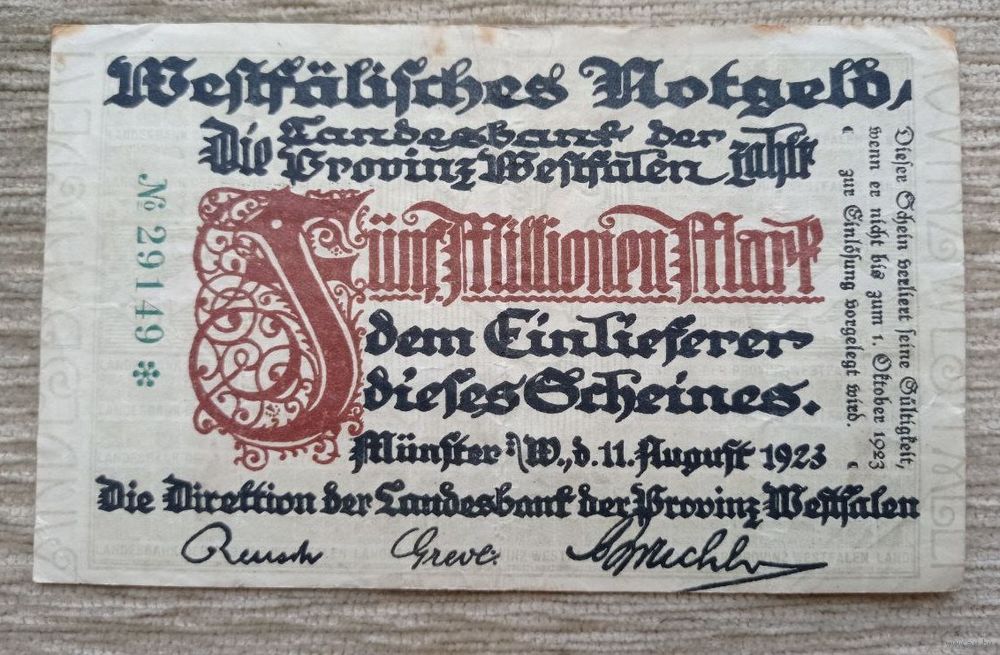 Westfälisches Notgeld/
Die Landesbank der
Provinz Westfalen zahlt
Fünf Millionen Mark
dem Einlieferer
dieses Scheines.
Münster i/W., d. 11. August 1923
Die Direktion der Landesbank der Provinz Westfalen
Reusch Grevel
№ 29149 ✻
Dieser Schein verliert seine Gültigkeit,
wenn er nicht bis zum 1. Oktober 1923
zur Einlösung vorgelegt wird.